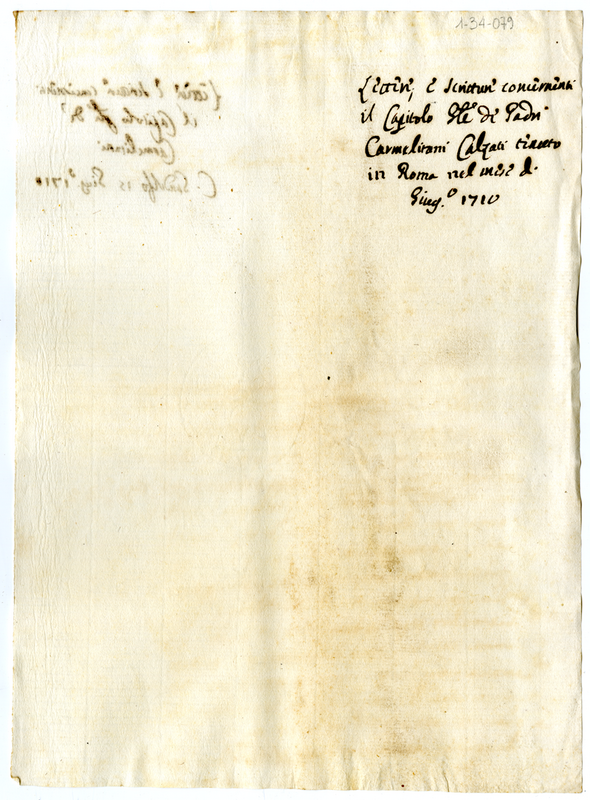 1-34-079
Lettere, e Scritture concernenti
il Capitolo Gle de Padri
Carmelitani Calzati tenuto
in Roma nel mese di
Giug.º 1710
Lettere e Scritture concernenti
il Capitolo Gle de
Carmelitani
15 Giug.º 1710